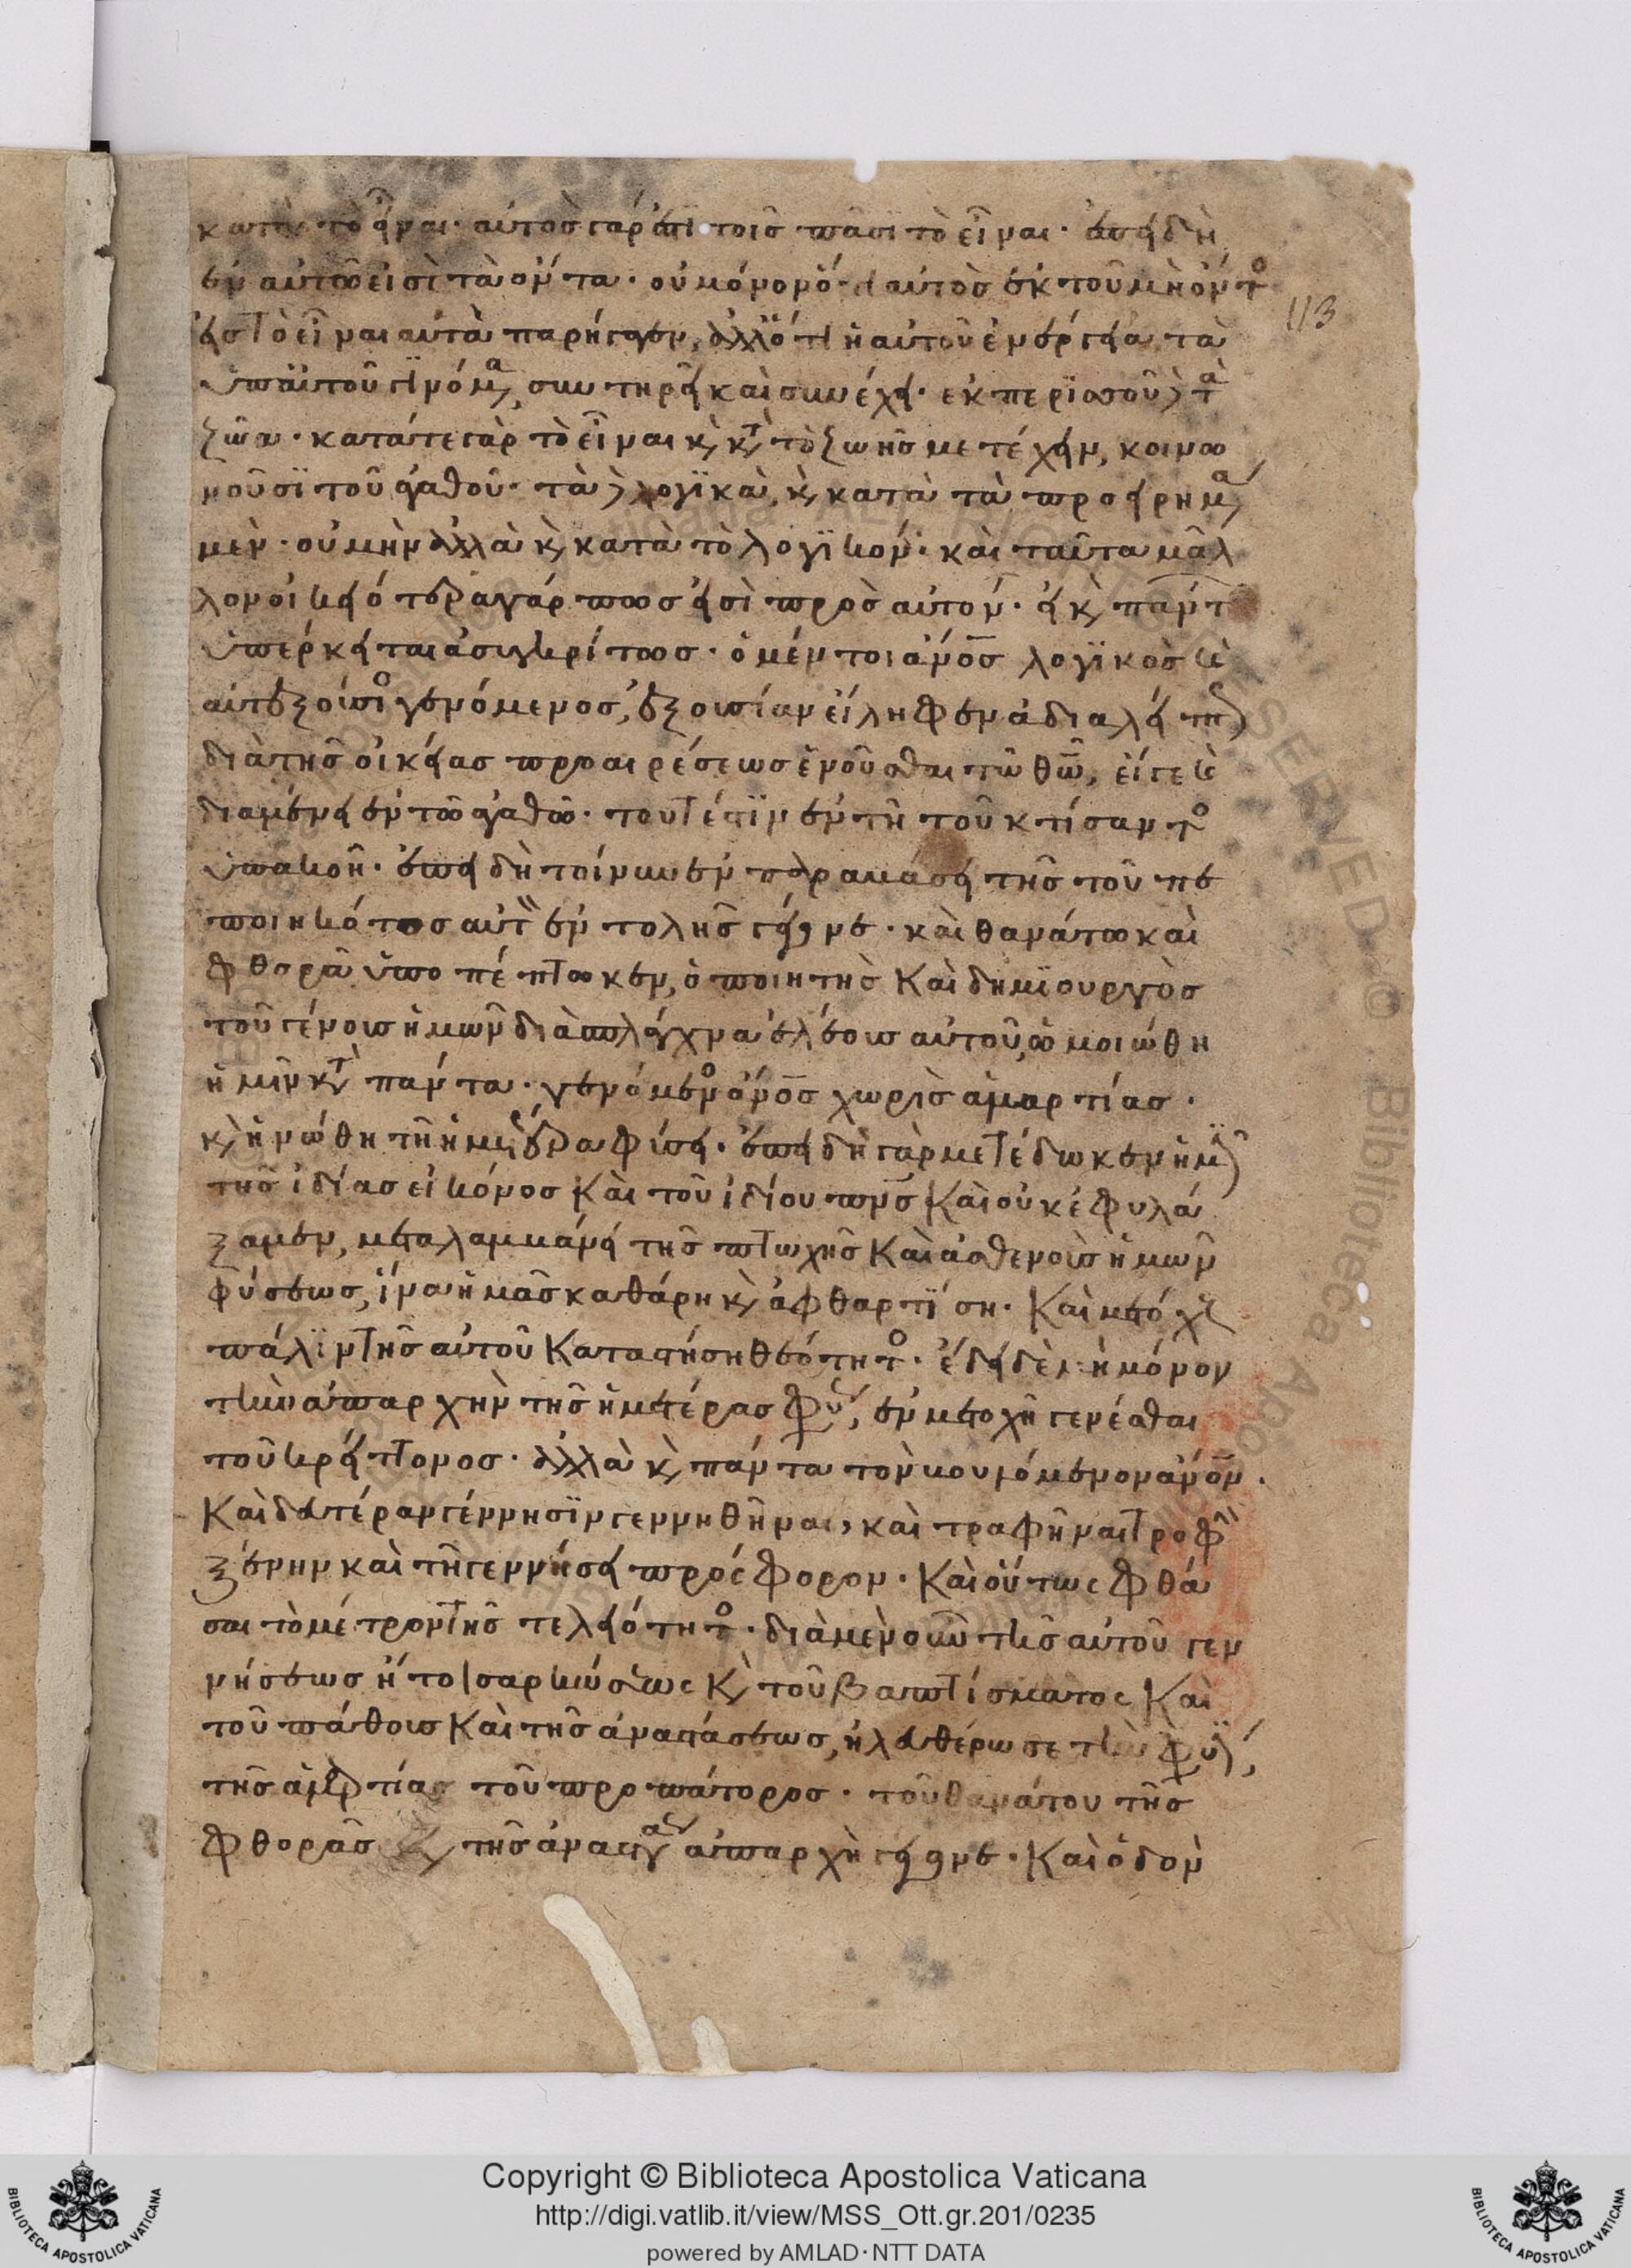 κατὰ τὸ εἶναι· αὐτὸς γάρ ἐστι τοῖς πᾶσι τὸ εἶναι· ἐπειδὴ
ἐν αὐτῶ εἰσὶ τὰ ὄντα· οὐ μόνον ὅτι αὐτὸς ἐκ τοῦ μὴ ὄντο
εἰς τὸ εἶναι αὐτὰ παρήγαγεν, ἀλλ' ὅτι ἡ αὐτοῦ ἐνέργεια τὰ
ὑπ' αὐτοῦ γινόμ^α συντηρεῖ καὶ συνέχει· ἐκ περισσοῦ δ τ^ὰ
ζῶα· κατά τε γὰρ τὸ εἶναι κ κτ τὸ ζωῆς μετέχειν, κοινω
νοῦσι τοῦ ἀγαθοῦ· τὰ δ λογικὰ, κ κατὰ τὰ προειρημ^α
μὲν· οὐ μὴν ἀλλὰ κ κατὰ τὸ λογικόν· καὶ ταῦτα μᾶλ
λον οἰκειότερα γάρ πως εἰσὶ πρὸς αὐτόν· εἰ κ πάντ
ὑπέρκειται ἀσυγκρίτως· ὁ μέντοι ἄνος λογικὸς κ
αὐτεξούσι^ο γενόμενος, ἐξουσίαν εἴληφεν ἀδιαλείπ
διὰ τῆς οἰκείας προαιρέσεως ἑνοῦσθαι τῶ θῶ, εἴγε κ
διαμένει ἐν τῶ ἀγαθῶ· τουτέστιν ἐν τῆ τοῦ κτίσαντ^ο
ὑπακοῆ· ἐπειδὴ τοίνυν ἐν παραβάσει τῆς τοῦ πε
ποιηκότος αὐτ ἐντολῆς γέγονε· καὶ θανάτω καὶ
φθορᾶ ὑποπέπτωκεν, ὁ ποιητὴς καὶ δημιουργὸς
τοῦ γένους ἡμῶν διὰ σπλάγχνα ἐλέους αὐτοῦ, ὡμοιώθη
ἡμῖν κτ πάντα· γενόμεν^ο ἄνος χωρὶς ἁμαρτίας·
κ ἡνώθη τῆ ἡμετέρα φύσει· ἐπειδὴ γὰρ μετέδωκεν ἡμ
τῆς ἰδίας εἰκόνος καὶ τοῦ ἰδίου πνς καὶ οὐκ ἐφυλά
ξαμεν, μεταλαμβάνει τῆς πτωχῆς καὶ ἀσθενοῦς ἡμῶν
φύσεως, ἵνα ἡμᾶς καθάρη κ ἀφθαρτίση· καὶ μετόχ
πάλιν τῆς αὐτοῦ καταστήση θεότητ^ο· ἔδει δὲ μὴ μόνον
τὴν ἀπαρχὴν τῆς ἡμετέρας φύ, ἐν μετοχῆ γενέσθαι
τοῦ κρείττονος· ἀλλὰ κ πάντα τὸν βουλόμενον ἄνον·
καὶ δευτέραν γέννησιν γεννηθῆναι, καὶ τραφῆναι τροφ
ξένην καὶ τῆ γεννήσει πρόσφορον· καὶ οὕτως φθά
σαι τὸ μέτρον τῆς τελειότητ^ο· διὰ μὲν οὖν τῆς αὐτοῦ γεν
νήσεως ἤτοι σαρκώσεως κ τοῦ βαπτίσματος καὶ
τοῦ πάθους καὶ τῆς ἀναστάσεως, ἠλευθέρωσε τὴν φύσ,
τῆς ἁμαρτίας τοῦ προπάτορος· τοῦ θανάτου τῆς
φθορᾶς κ τῆς ἀναστά ἀπαρχὴ γέγονε· καὶ ὁδὸν
113
Copyright © Biblioteca Apostolica Vaticana
http://digi.vatlib.it/view/MSS_Ott.gr.201/0235
powered by AMLAD·NTT DATA
BIBLIOTECA APOSTOLICA VATICANA
BIBLIOTECA APOSTOLICA VATICANA